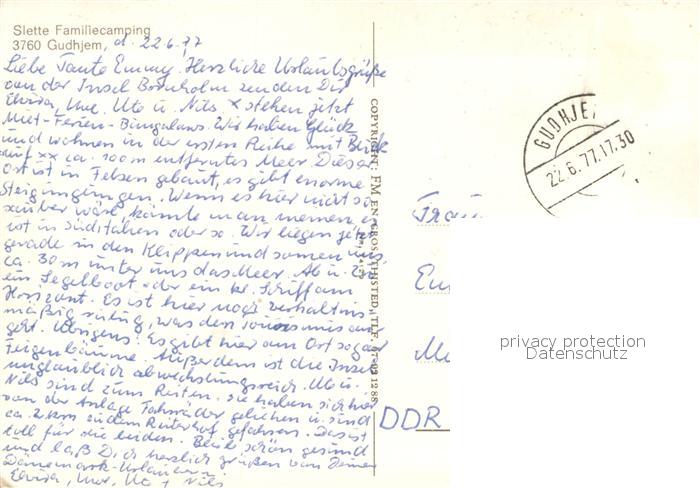 Slette Familiecamping
3760 Gudhjem, d. 22.6.77
Liebe Tante Emmy. Herzliche Urlaubsgrüße
von der Insel Bornholm senden Dir
Uwe, Ute u. Nils x stehen jetzt
Miet-Ferien-Bungalows. Wir haben Glück
und wohnen in der ersten Reihe mit Blick
auf xx ca. 100m entferntes Meer. Dieser
Ort ist in Felsen gebaut, es gibt enorme
Steigungen. Wenn es hier nicht so
sauber wäre, könnte man meinen, es
ist in Süditalien oder so. Wir liegen jetzt
gerade in den Klippen und sonnen uns
ca. 30m unter uns das Meer. Ab u. zu
ein Segelboot oder ein kl. Schiff am
Horizont. Es ist hier noch verhältnis-
mäßig ruhig, was den Tourismus an-
geht. Übrigens: Es gibt hier am Ort sogar
Feigenbäume. Außerdem ist die Insel
unglaublich abwechslungsreich. Ute u.
Nils sind zum Reiten. Sie haben sich hier
von der Anlage Fahrräder geliehen u. sind
ca. 2 km zu dem Reiterhof gefahren. Das ist
toll für die beiden. Bleib schön gesund
und laß Dich herzlich grüßen von Deinen
Dänemark-Urlaubern
Ute + Nils
COPYRIGHT: FM EN-GROS, THISTED, TLF.
GUDHJE
22.6.77.17.30
DDR
privacy protection
Datenschutz